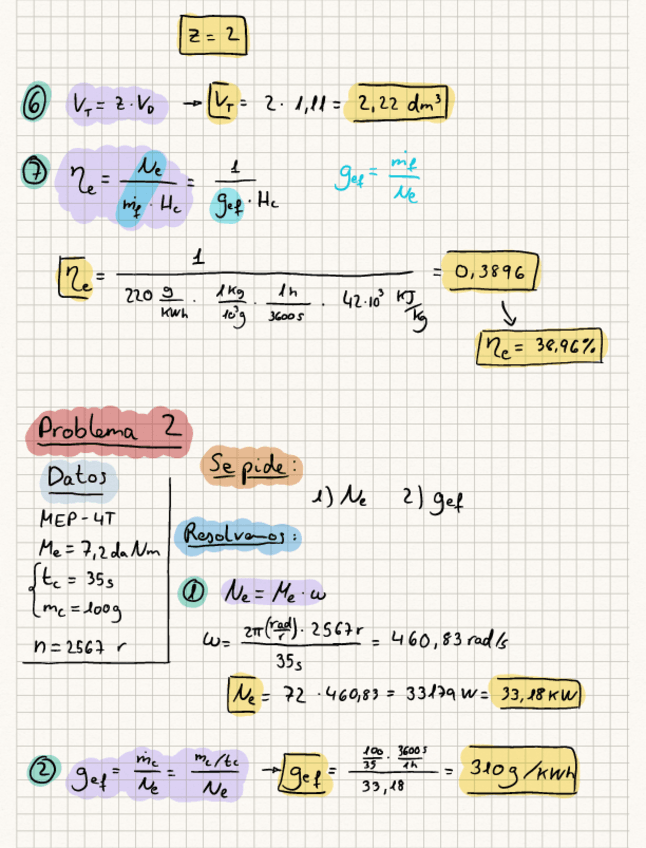 z = 2
⑥ V_T = z · V_D → V_T = 2 · 1,11 = 2,22 dm³
⑦ η_e = Ne / (ṁ_f · Hc) = 1 / (g_ef · Hc)
g_ef = ṁ_f / Ne
η_e = 1 / (220 g/kWh · 1Kg/10³g · 1h/3600s · 42·10³ KJ/kg) = 0,3896
η_e = 38,96%
Problema 2
Datos
MEP-4T
Me = 7,2 da Nm
t_c = 35s
m_c = 100g
n = 2567 r
Se pide:
1) Ne 2) g_ef
Resolvamos:
① Ne = Me · ω
ω = 2π(rad/r) · 2567 r / 35s = 460,83 rad/s
Ne = 72 · 460,83 = 33179 W = 33,18 KW
② g_ef = ṁ_c / Ne = (m_c/t_c) / Ne → g_ef = (100/35 · 3600s/1h) / 33,18 = 310 g/KWh